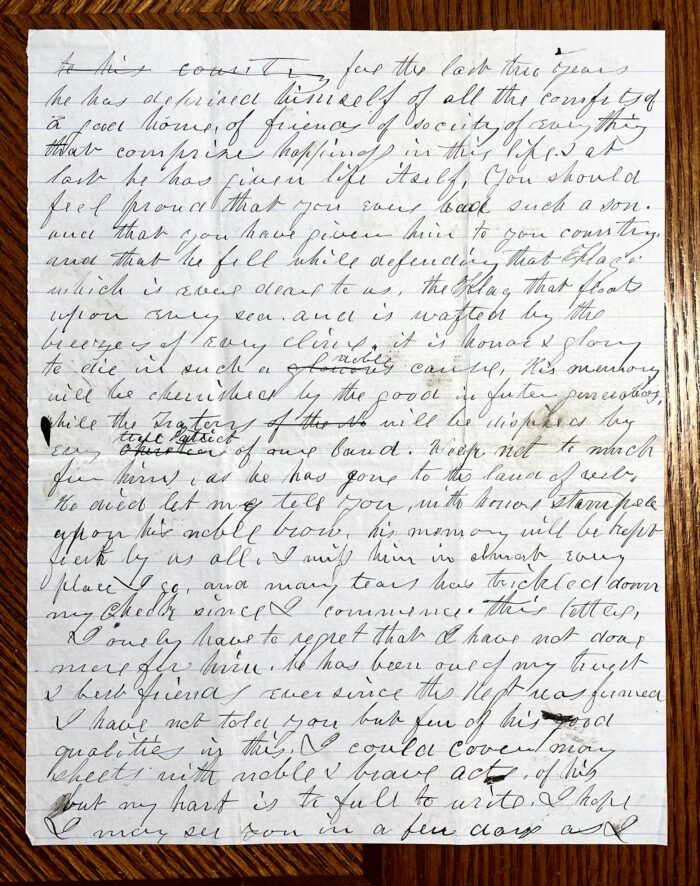 to his country for the last two years
he has deprived himself of all the comfits of
a good home, of friends of society of everything
that comprise happiness in this life & at
last he has given life itself, You should
feel proud that you ever had such a son.
and that you have given him to you country
and that he fell while defending that Flag.
which is ever deare to us, the Flag that floats
upon every sea. and is wafted by the
breezes of every clime, it is honor & glory
to die in such a glorious noble cause, His memory
will be cherished by the good in futer generations,
while the Traters of the will be dispised by
every Christian true Patriot of our land. Weep not to much
for him, as he has gone to the land of rest.
He died let me tell you, with honor stamped
upon his noble brow, his memory will be kept
fresh by us all, I miss him in almost every
place I go, and many tears has trickled down
my cheek since I commence. this letter,
I onely have to regret that I have not done
more for him. he has been one of my truest
& best friends ever since the Regt was formed
I have not told you but few of his good
qualities in this, I could cover many
sheets with noble & brave acts, of his
but my hart is to full to write, I hope
I may see you in a few days as I